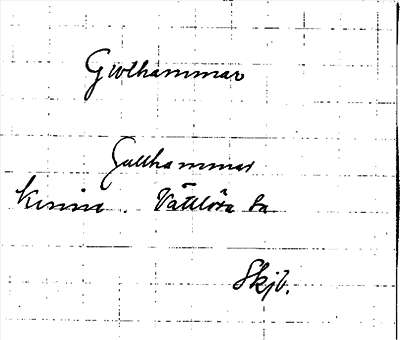 Gullhammar
Gullhammar
Kinne. Vättlösa sn
Skjb.